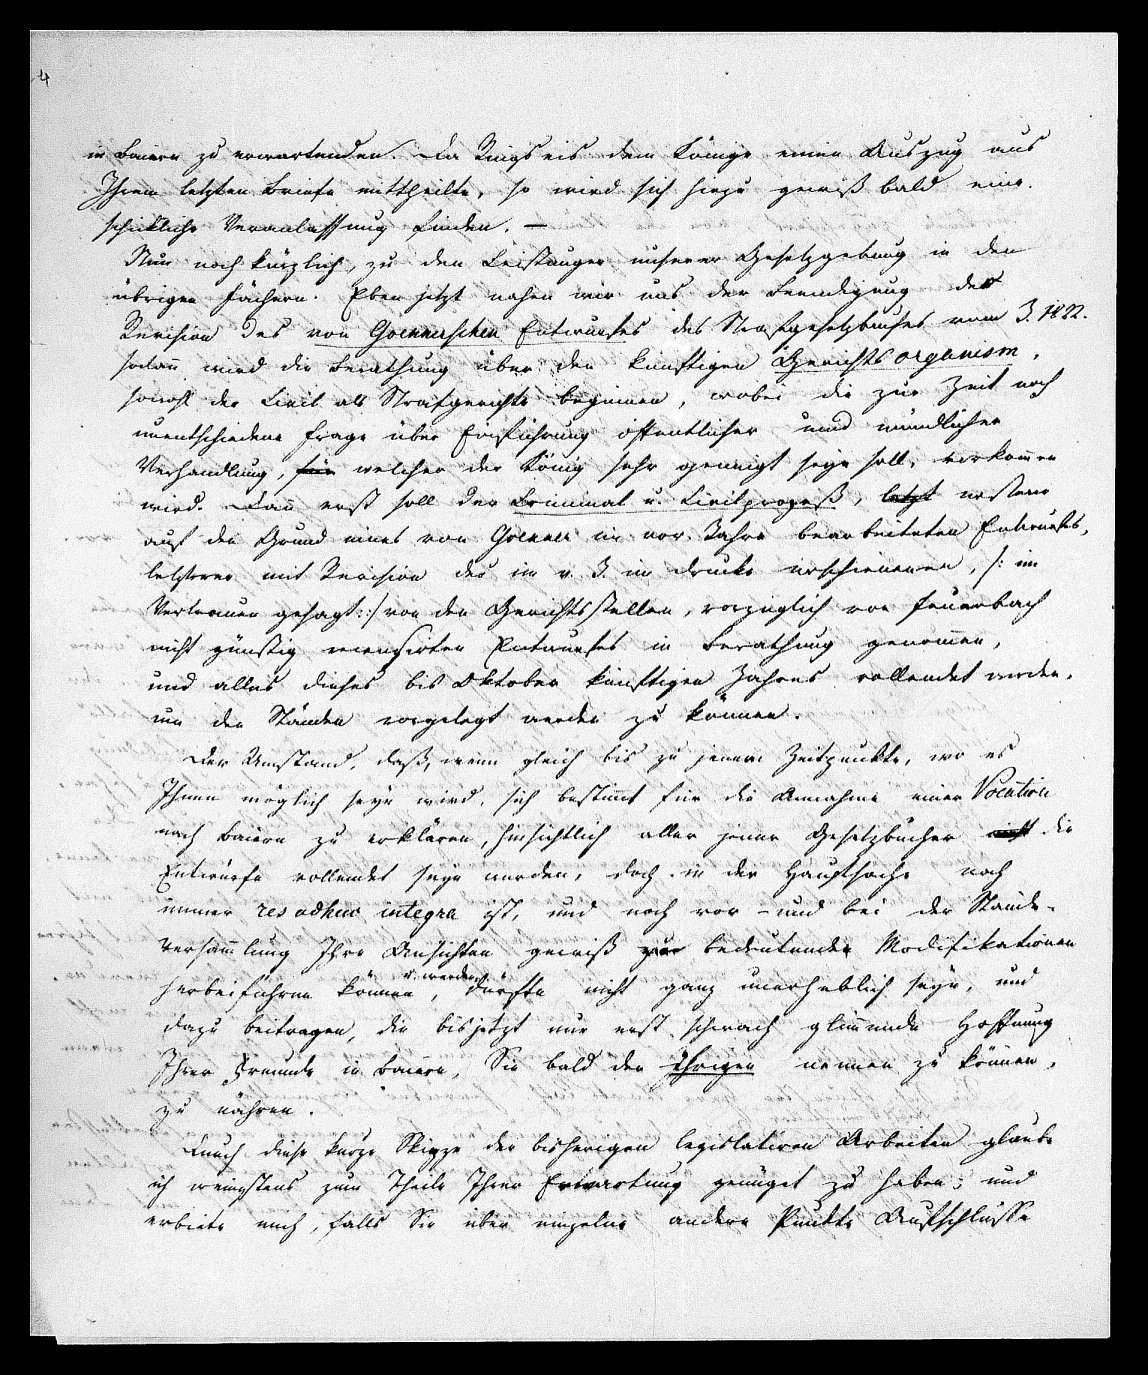 4
in Baiern zu erwartenden. Da Ringseis dem Könige einen Auszug aus
Ihrem letzten Briefe mittheilte, so wird sich hiezu gewiß bald eine
schickliche Veranlassung finden. —
Nun noch kürzlich, zu den Leistungen unserer Gesetzgebung in den
übrigen Fächern. Eben jetzt nahen wir uns der Beendigung der
Revision des von Goennerschen Entwurfes des Strafgesetzbuches vom J. 1822.
sodann wird die Berathung über den künftigen Gerichtsorganism,
sowohl der Civil als Strafgerichte beginnen, wobei die zur Zeit noch
unentschiedene Frage über Einführung öffentlicher und mündlicher
Verhandlung, für welcher der König sehr geneigt seyn soll, vorkommen
wird. Dann erst soll der Criminal u. Civilprozeß, letzt ersterer
auf den Grund eines von Goenner im vor. Jahre bearbeiteten Entwurfes,
letzterer mit Revision des im v. J. im Drucke erschienenen, /: im
Vertrauen gesagt: :/ von den Gerichtsstellen, vorzüglich von Feuerbach
nicht günstig recensirten Entwurfes in Berathung genommen,
und alles dieses bis Oktober künftigen Jahres vollendet werden,
um den Ständen vorgelegt werden zu können.
Der Umstand, daß, wenn gleich bis zu jenem Zeitpunkte, wo es
Ihnen möglich seyn wird, sich bestimmt für die Annahme einer Vocation
nach Baiern zu erklären, hinsichtlich aller jener Gesetzbücher nicht die
Entwürfe vollendet seyn werden, doch in der Hauptsache noch
immer res adhuc integra ist, und noch vor - und bei der Stände-
versammlung Ihre Ansichten gewiß zur bedeutenden Modifikationen
herbeiführen können u. werden, dürfte nicht ganz unerheblich seyn, und
dazu beitragen, die bisjetzt nur erst schwach glimmende Hoffnung
Ihrer Freunde in Baiern, Sie bald den Ihrigen nennen zu können,
zu nähren.
Durch diese kurze Skizze der bisherigen legislativen Arbeiten glaube
ich wenigstens zum Theile Ihrer Erwartung genüget zu haben; und
erbiete mich, falls Sie über einzelne andere Punkte Aufschlüsse